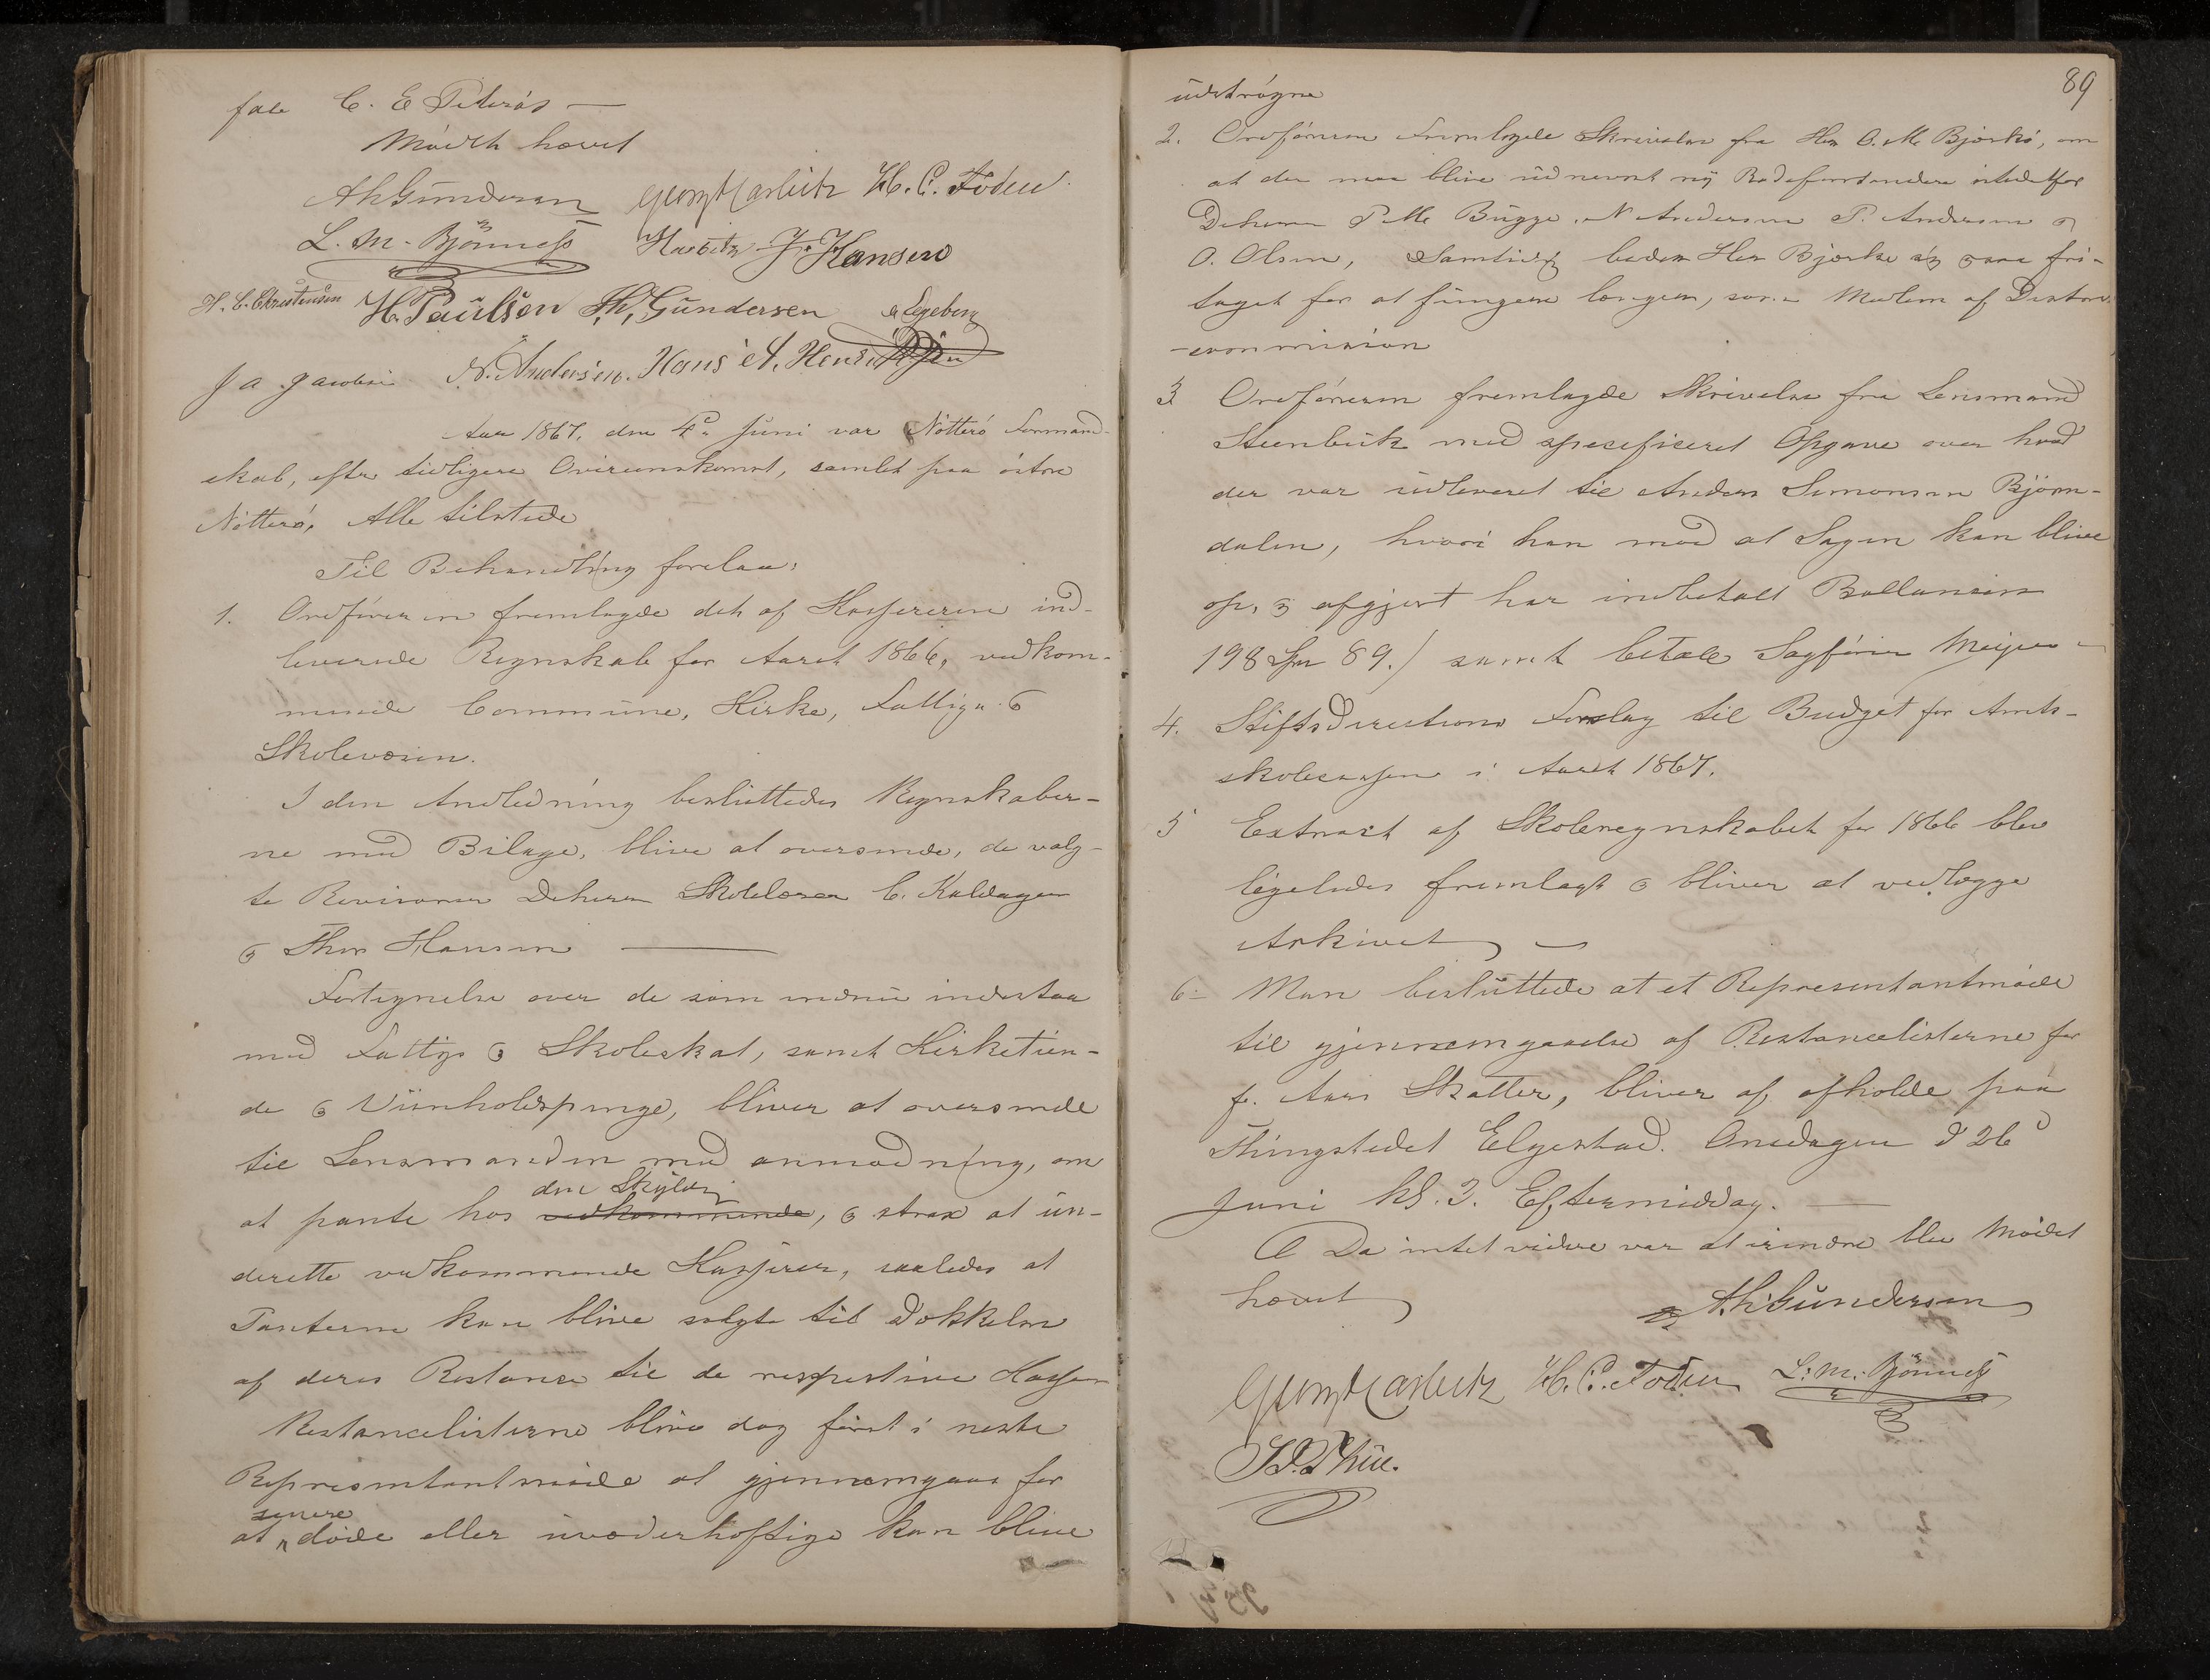 fald C. E Peterös —
Mödth hævet
A h Gundersen Georg H Carbutz H. C. Foden.
L. M. Bjönness J. Hansen
H. C. Christensen H. Paulsen Th, Gundersen
J a Jacobsen N. Andersen. Hans A. Henriksen
Aar 1867, den 4de Juni var Nötterö Formand-
skab, efter tidligere Overeenskomst, samlet paa östre
Nötterö, Alle tilstede
Til Behandling forelaa:
1. Ordföreren fremlagde det af Kassereren ind-
leverede Regnskab for Aaret 1866, vedkom-
mende Commune, Kirke, Fattig & 
Skolevæsen.
I den Anledning besluttedes Regnskaber-
ne med Bilage, blive at oversende, de valg-
te Revisorer Deherrer Skolelærer C. Kaldager
& Thor Hansen —
Fortegnelse over de som endnu indestaa
med Fattigs & Skoleskat, samt Kirketien-
de & Viinholdspenge, bliver at oversende
til Lensmanden med anmodning, om
den Skyldig
at pante hos vedkommende, & strax at un-
derette vedkommende Kasserer, saaledes at
Panterne kan blive solgte til Dækkelse
af deres Restance til de respective Kasser
Restancelisterne blive dog först i neste
Representantmöde at gjennemgaaes for
senere
at döde eller uvederhæftige kan blive
89
udströgne
2. Ordföreren Fremlagde Skrivelse fra Herr O. M. Bjerkö, om
at der maa blive udnevnt ny Rodeforstandere istedetfor
Deherrer P. M. Bugge, N Andersen P. Andersen &
O. Olsen, Samtidig beder Herr Bjerke sig være fri-
taget for at fungere længere, som Medlem af Distri
-commission
3 Ordföreren fremlagde Skrivelse fra Lensmand
Steenbuch med specificeret Opgave over hvad
der var udleveret til Anders Simonsen Björn-
dalen, hvori han mod at Sagen kan blive
op, & afgjort har indbetalt Ballancen
198 Spd 89./ samt betale Sagförer Meyer —
4. Stiftsdirectionens Forslag til Budget for Amts-
skolecassen i Aaret 1867.
5 Extract af Skoleregnskabet for 1866 blev
ligeledes fremlagt & bliver at vedlægge
Arkivet —
6 — Man besluttede at et Representantmöde
til gjennemgaaelse af Restancelisterne for
f. Aars Skatter, bliver af afholde paa
Thingstedet Elgestad. Onsdagen d 26d
Juni kl. 3. Eftermiddag. —
Da intet videre var at erindre blev Mödet
hævet
A. h. Gundersen
Georg H Carbutz H. C. Foden L. M. Bjönness